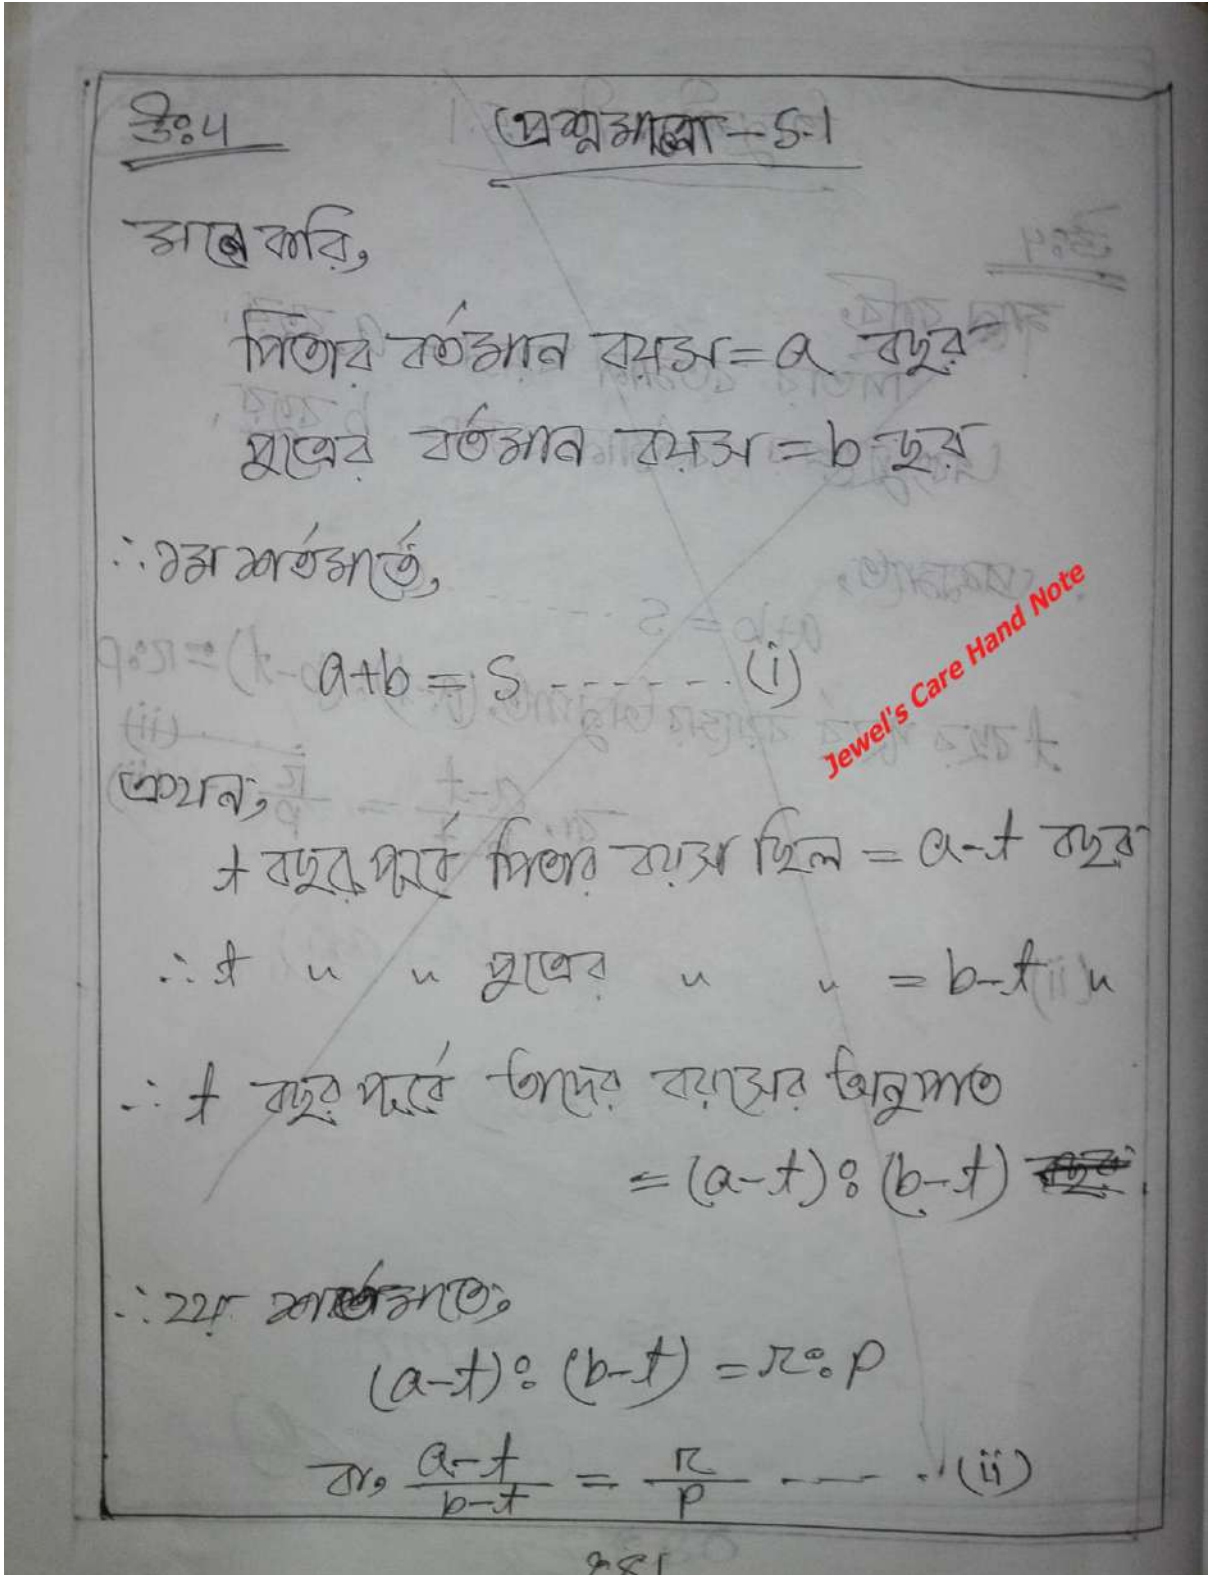 উঃ ৪ প্রশ্নমালা - 5.1
মনে করি,
পিতার বর্তমান বয়স = a বছর
পুত্রের বর্তমান বয়স = b ছর
∴ ১ম শর্তমতে,
a+b = S ------- (i)
Jewel's Care Hand Note
এখন,
t বছর পূর্বে পিতার বয়স ছিল = a-t বছর
∴ t " " পুত্রের " " = b-t "
∴ t বছর পূর্বে তাদের বয়সের অনুপাত
= (a-t) : (b-t)
∴ ২য় শর্তমতে,
(a-t) : (b-t) = r : p
বা, \frac{a-t}{b-t} = \frac{r}{p} ---- (ii)